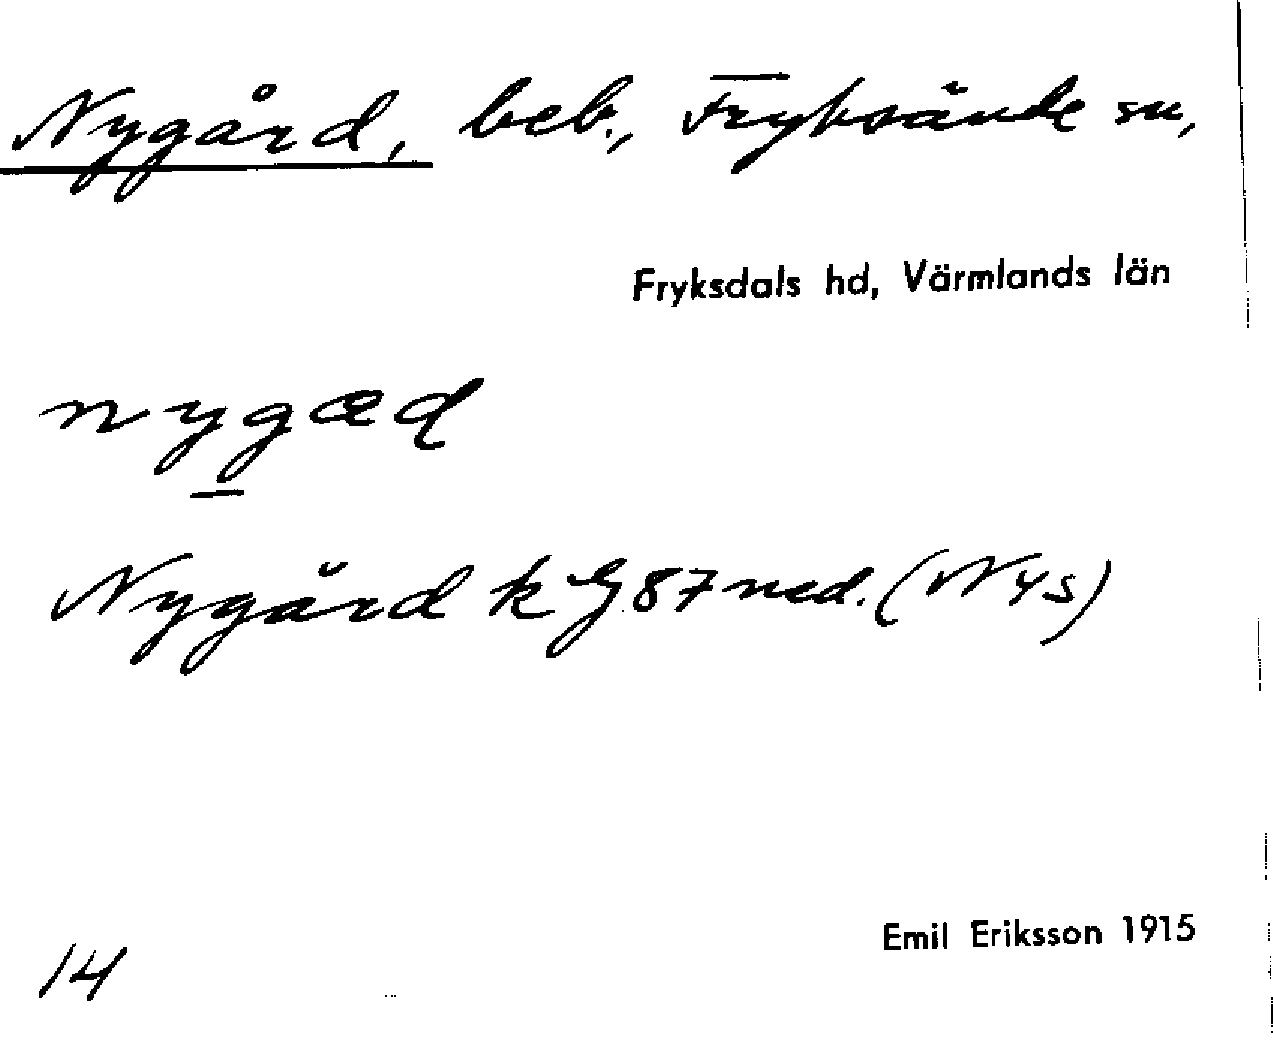 Nygård, beb., Fryksände sn,
Fryksdals hd, Värmlands län
nygæd
Nygård k G.87 ned. (N4s)
Emil Eriksson 1915
14